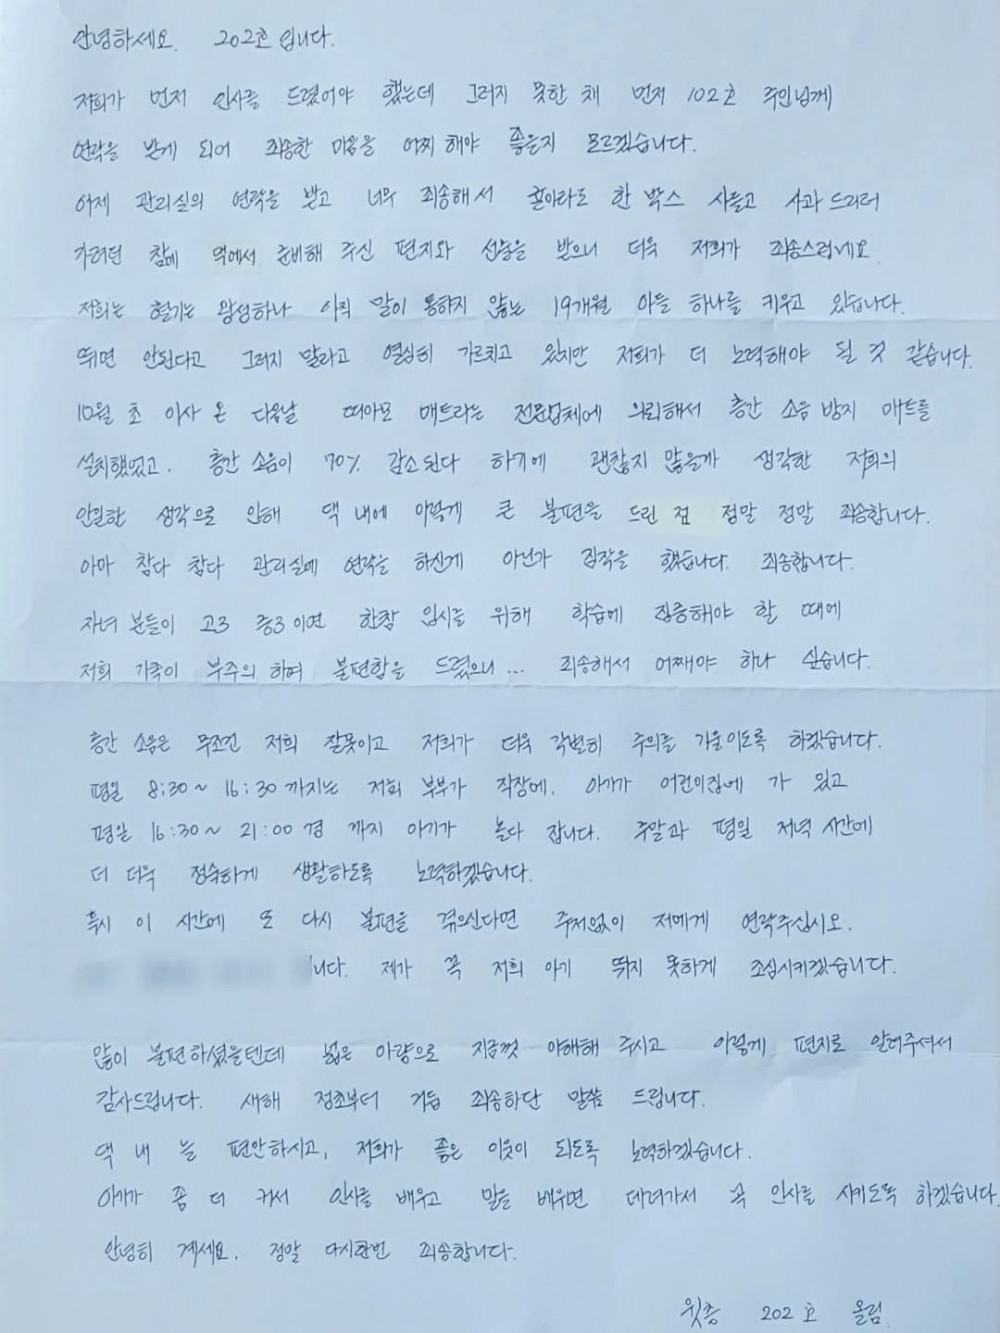 안녕하세요. 202호 입니다.
저희가 먼저 인사를 드렸어야 했는데 그러지 못한 채 먼저 102호 주인님께
연락을 받게 되어 죄송한 마음을 어찌 해야 좋을지 모르겠습니다.
어제 관리실의 연락을 받고 너무 죄송해서 귤이라도 한 박스 사들고 사과 드리러
가려던 참에 댁에서 준비해 주신 편지와 선물을 받으니 더욱 저희가 죄송스럽네요.
저희는 혈기는 왕성하나 아직 말이 통하지 않는 19개월 아들 하나를 키우고 있습니다.
뛰면 안된다고 그러지 말라고 열심히 가르치고 있지만 저희가 더 노력해야 될 것 같습니다.
10월 초 이사 온 다음날 따아모 매트라는 전문업체에 의뢰해서 층간 소음 방지 매트를
설치했었고. 층간 소음이 70% 감소된다 하기에 괜찮지 않을까 생각한 저희의
안일한 생각으로 인해 댁 내에 이렇게 큰 불편을 드린 점 정말 정말 죄송합니다.
아마 참다 참다 관리실에 연락을 하신게 아닌가 짐작을 했습니다. 죄송합니다.
자녀 분들이 고3 중3 이면 한참 입시를 위해 학습에 집중해야 할 때에
저희 가족이 부주의 하여 불편함을 드렸으니... 죄송해서 어째야 하나 싶습니다.
층간 소음은 무조건 저희 잘못이고 저희가 더욱 각별히 주의를 기울이도록 하겠습니다.
평일 8:30~ 16:30 까지는 저희 부부가 직장에. 아가가 어린이집에 가 있고
평일 16:30~ 21:00 경 까지 아기가 놀다 잡니다. 주말과 평일 저녁 시간에
더 더욱 정숙하게 생활하도록 노력하겠습니다.
혹시 이 시간에 또 다시 불편을 겪으신다면 주저없이 저에게 연락주십시오.
니다. 제가 꼭 저희 아기 뛰지 못하게 조심시키겠습니다.
많이 불편하셨을텐데 넓은 아량으로 지금껏 이해해 주시고 이렇게 편지로 알려주셔서
감사드립니다. 새해 정초부터 거듭 죄송하단 말씀 드립니다.
댁 내 늘 편안하시고, 저희가 좋은 이웃이 되도록 노력하겠습니다.
아가가 좀 더 커서 인사를 배우고 말을 배우면 데려가서 꼭 인사를 시키도록 하겠습니다.
안녕히 계세요. 정말 다시한번 죄송합니다.
윗층 202호 올림.